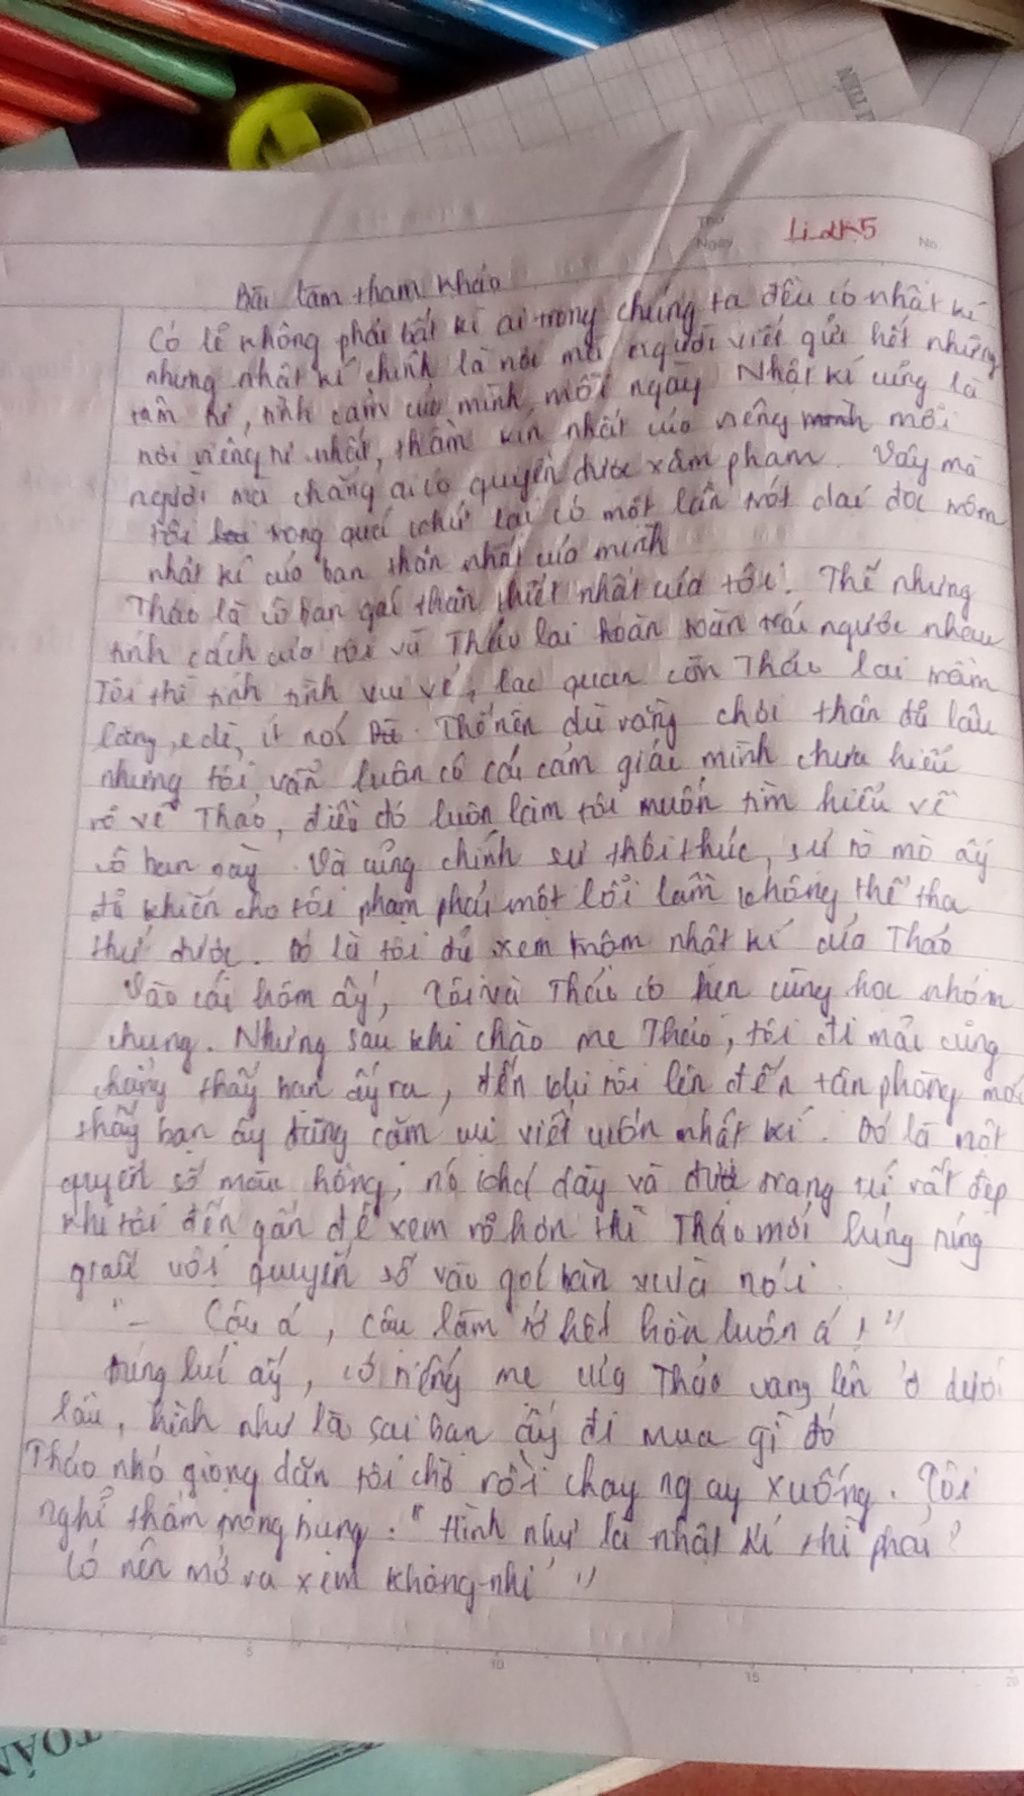 Thứ
Ngày
No.
Bài làm tham khảo
Có lẽ không phải bất kì ai trong chúng ta đều có nhật kí
nhưng nhật kí chính là nơi mà người viết gửi hết những
tâm tư, tình cảm của mình mỗi ngày Nhật kí cũng là
nơi riêng tư nhất, thầm kín nhất của riêng mình mỗi
người mà chẳng ai có quyền được xâm phạm. Vậy mà
tôi trong quá khứ lại có một lần trót dại đọc trộm
nhật kí của bạn thân nhất của mình
Thảo là cô bạn gái thân thiết nhất của tôi. Thế nhưng
tính cách của tôi và Thảo lại hoàn toàn trái ngược nhau
Tôi thì tính tình vui vẻ, lạc quan còn Thảo lại trầm
lặng, e dè, ít nói. Thế nên dù rằng chơi thân đã lâu
nhưng tôi vẫn luôn có cái cảm giác mình chưa hiểu
rõ về Thảo, điều đó luôn làm tôi muốn tìm hiểu về
cô bạn này. Và cũng chính sự thôi thúc, sự tò mò ấy
đã khiến cho tôi phạm phải một lỗi lầm không thể tha
thứ được. Đó là tôi đã xem trộm nhật kí của Thảo
Vào cái hôm ấy, Tôi và Thảo có hẹn cùng học nhóm
chung. Nhưng sau khi chào mẹ Thảo, tôi đi mãi cũng
chẳng thấy bạn ấy ra, đến khi tôi lên đến tận phòng mới
thấy bạn ấy đang cặm cụi viết cuốn nhật kí. Đó là một
quyển sổ màu hồng, nó khá dày và được trang trí rất đẹp
khi tôi đến gần để xem rõ hơn thì Thảo mới lúng túng
giấu vội quyển sổ vào góc bàn và nói
"- Cậu á, cậu làm tớ hết hồn luôn á!"
Đúng lúc ấy, có tiếng mẹ của Thảo vang lên ở dưới
lầu, hình như là sai bạn ấy đi mua gì đó
Thảo nhỏ giọng dặn tôi chờ rồi chạy ngay xuống. Tôi
nghĩ thầm trong bụng: "Hình như là nhật kí thì phải?
Có nên mở ra xem không nhỉ"
5
10
15
20
TOÁN